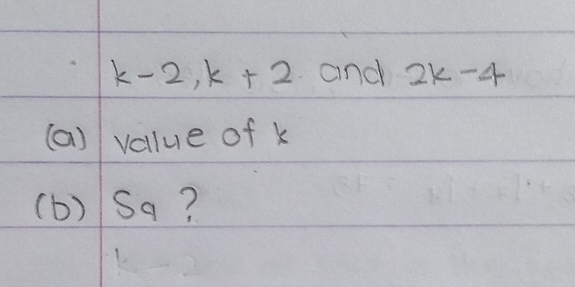 k-2, k + 2 and 2k-4
(a) value of k
(b) S9 ?